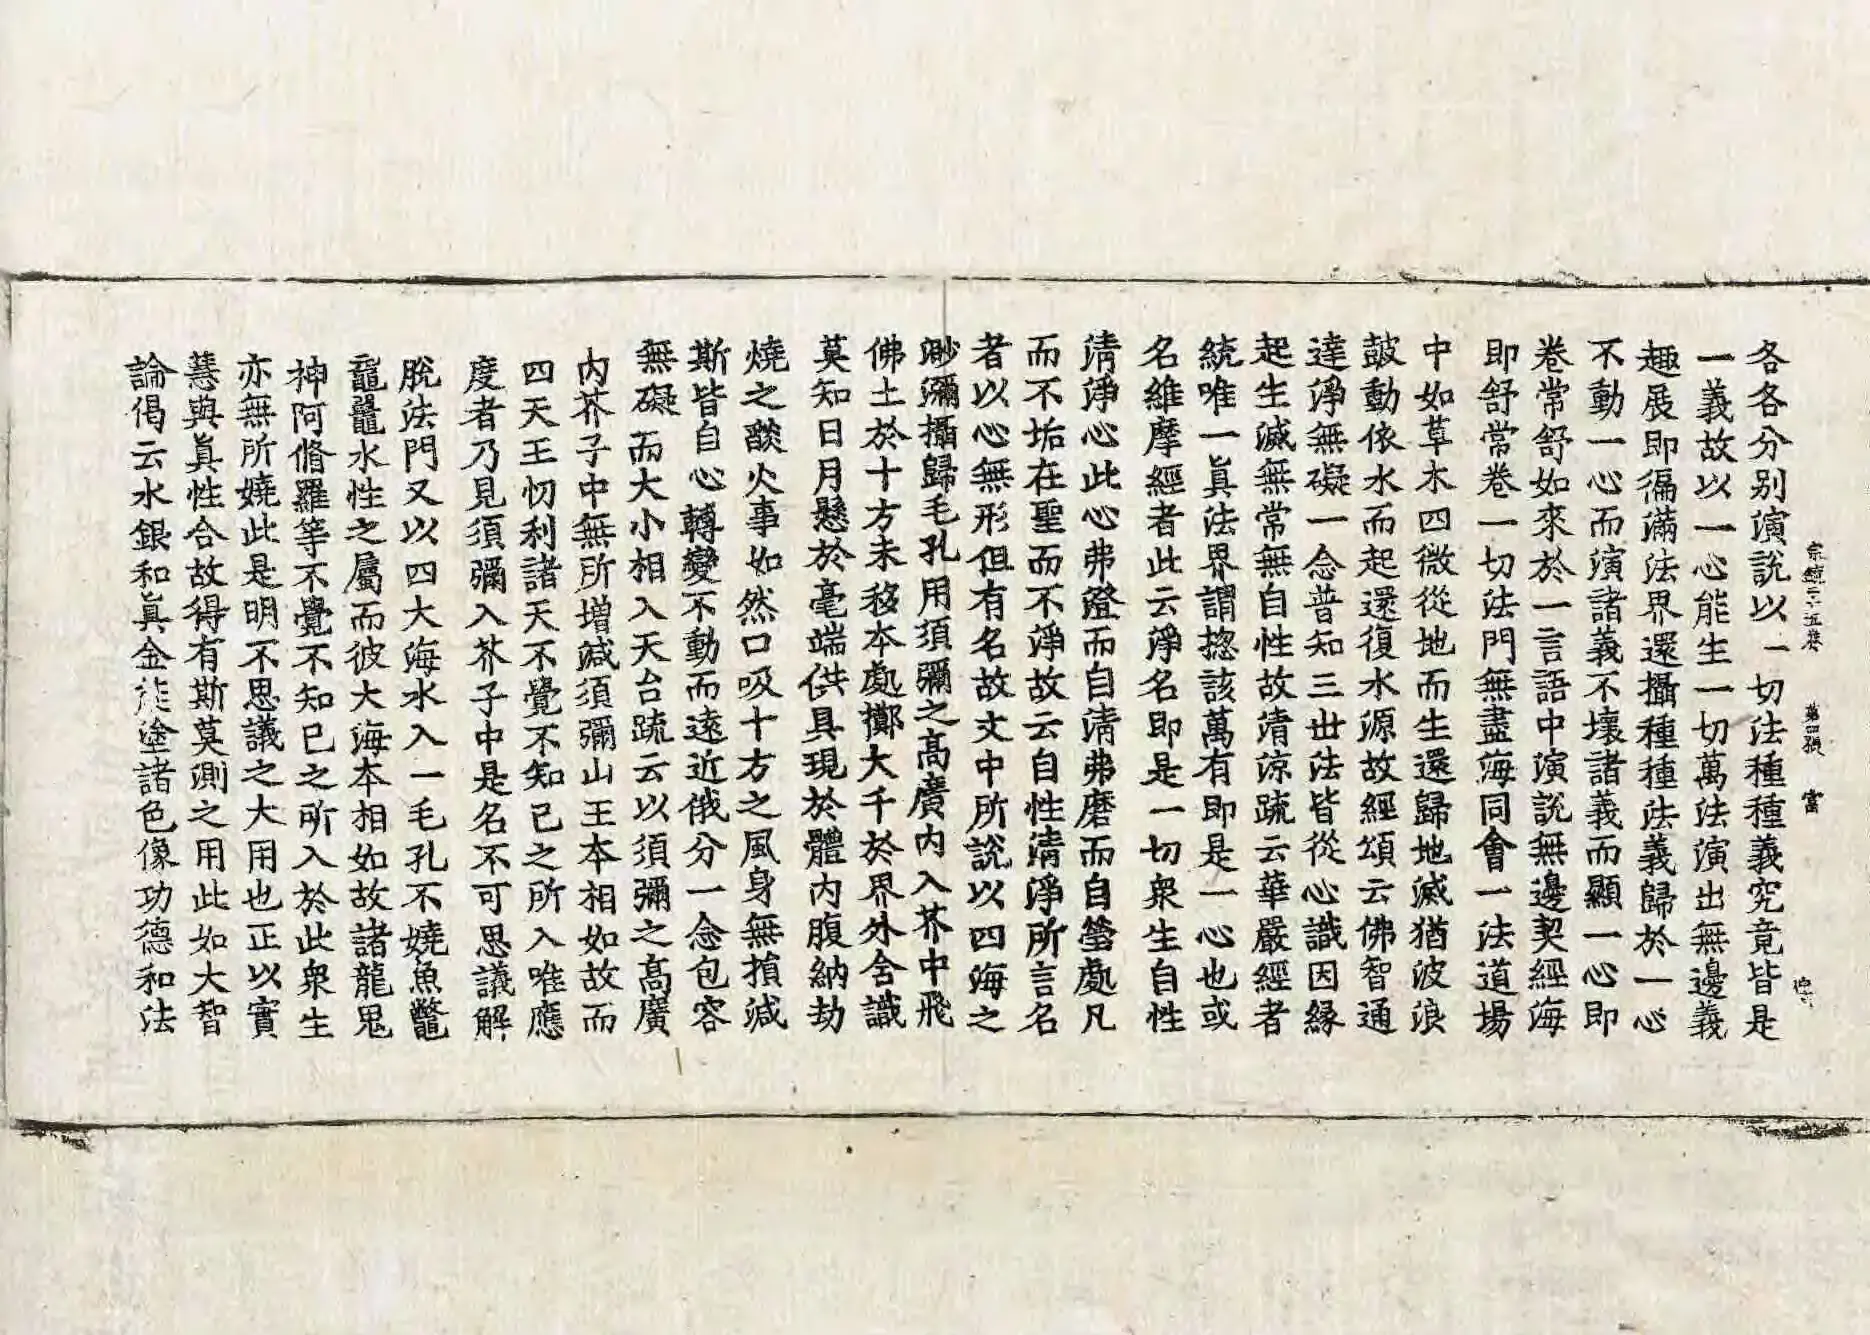 宗鏡二十五卷 第四張 富
各各分別演說以一切法種種義究竟皆是
一義故以一心能生一切萬法演出無邊義
趣展即徧滿法界還攝種種法義歸於一心
不動一心而演諸義不壞諸義而顯一心即
卷常舒如來於一言語中演說無邊契經海
即舒常卷一切法門無盡海同會一法道場
中如草木四微從地而生還歸地滅猶波浪
皷動依水而起還復水源故經頌云佛智通
達淨無礙一念普知三世法皆從心識因緣
起生滅無常無自性故清涼疏云華嚴經者
統唯一眞法界謂揔該萬有即是一心也或
名維摩經者此云淨名即是一切衆生自性
清淨心此心弗澄而自清弗磨而自瑩處凡
而不垢在聖而不淨故云自性清淨所言名
者以心無形但有名故文中所說以四海之
渺瀰攝歸毛孔用須彌之高廣內入芥中飛
佛土於十方未移本處擲大千於界外含識
莫知日月懸於毫端供具現於體內腹納劫
燒之燄火事如然口吸十方之風身無損減
斯皆自心轉變不動而遠近俄分一念包容
無礙而大小相入天台疏云以須彌之高廣
內芥子中無所增減須彌山王本相如故而
四天王忉利諸天不覺不知己之所入唯應
度者乃見須彌入芥子中是名不可思議解
脫法門又以四大海水入一毛孔不嬈魚鼈
黿鼉水性之屬而彼大海本相如故諸龍鬼
神阿脩羅等不覺不知己之所入於此衆生
亦無所嬈此是明不思議之大用也正以實
慧與眞性合故得有斯莫測之用此如大智
論偈云水銀和眞金能塗諸色像功德和法